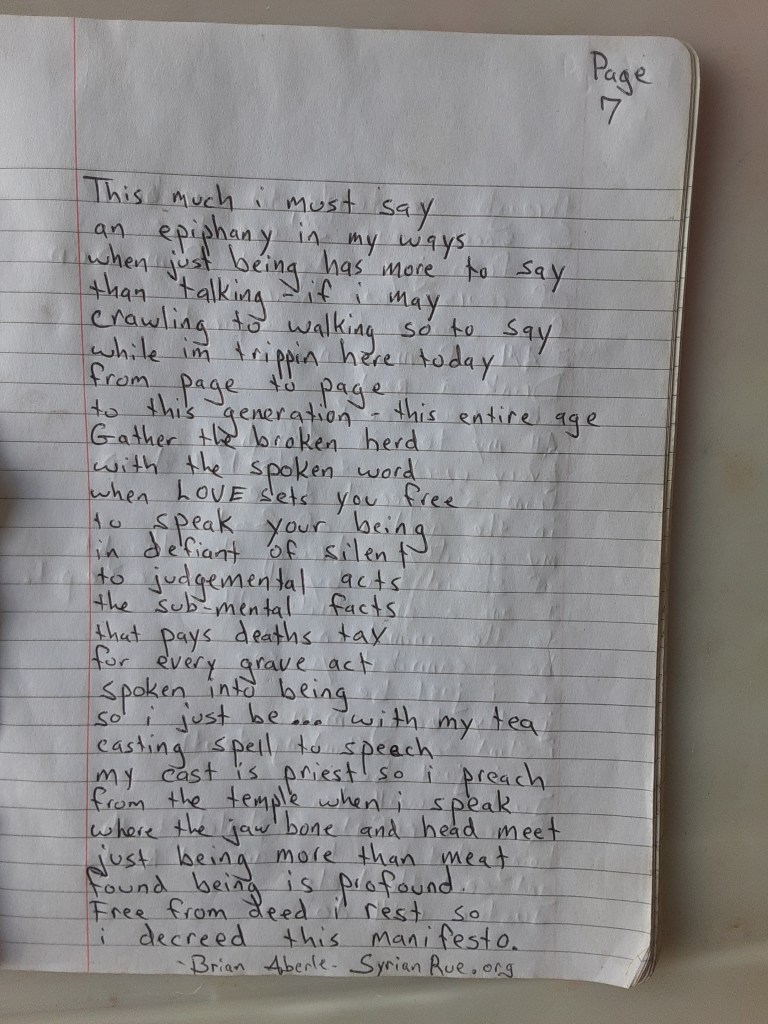 Page
7
This much i must say
an epiphany in my ways
when just being has more to say
than talking - if i may
crawling to walking so to say
while im trippin here today
from page to page
to this generation - this entire age
Gather the broken herd
with the spoken word
when LOVE sets you free
to speak your being
in defiant of silent
to judgemental acts
the sub-mental facts
that pays deaths tax
for every grave act
spoken into being
so i just be... with my tea
casting spell to speech
my cast is priest so i preach
from the temple when i speak
where the jaw bone and head meet
just being more than meat
found being is profound.
Free from deed i rest so
i decreed this manifesto.
-Brian Aberle- SyrianRue.org